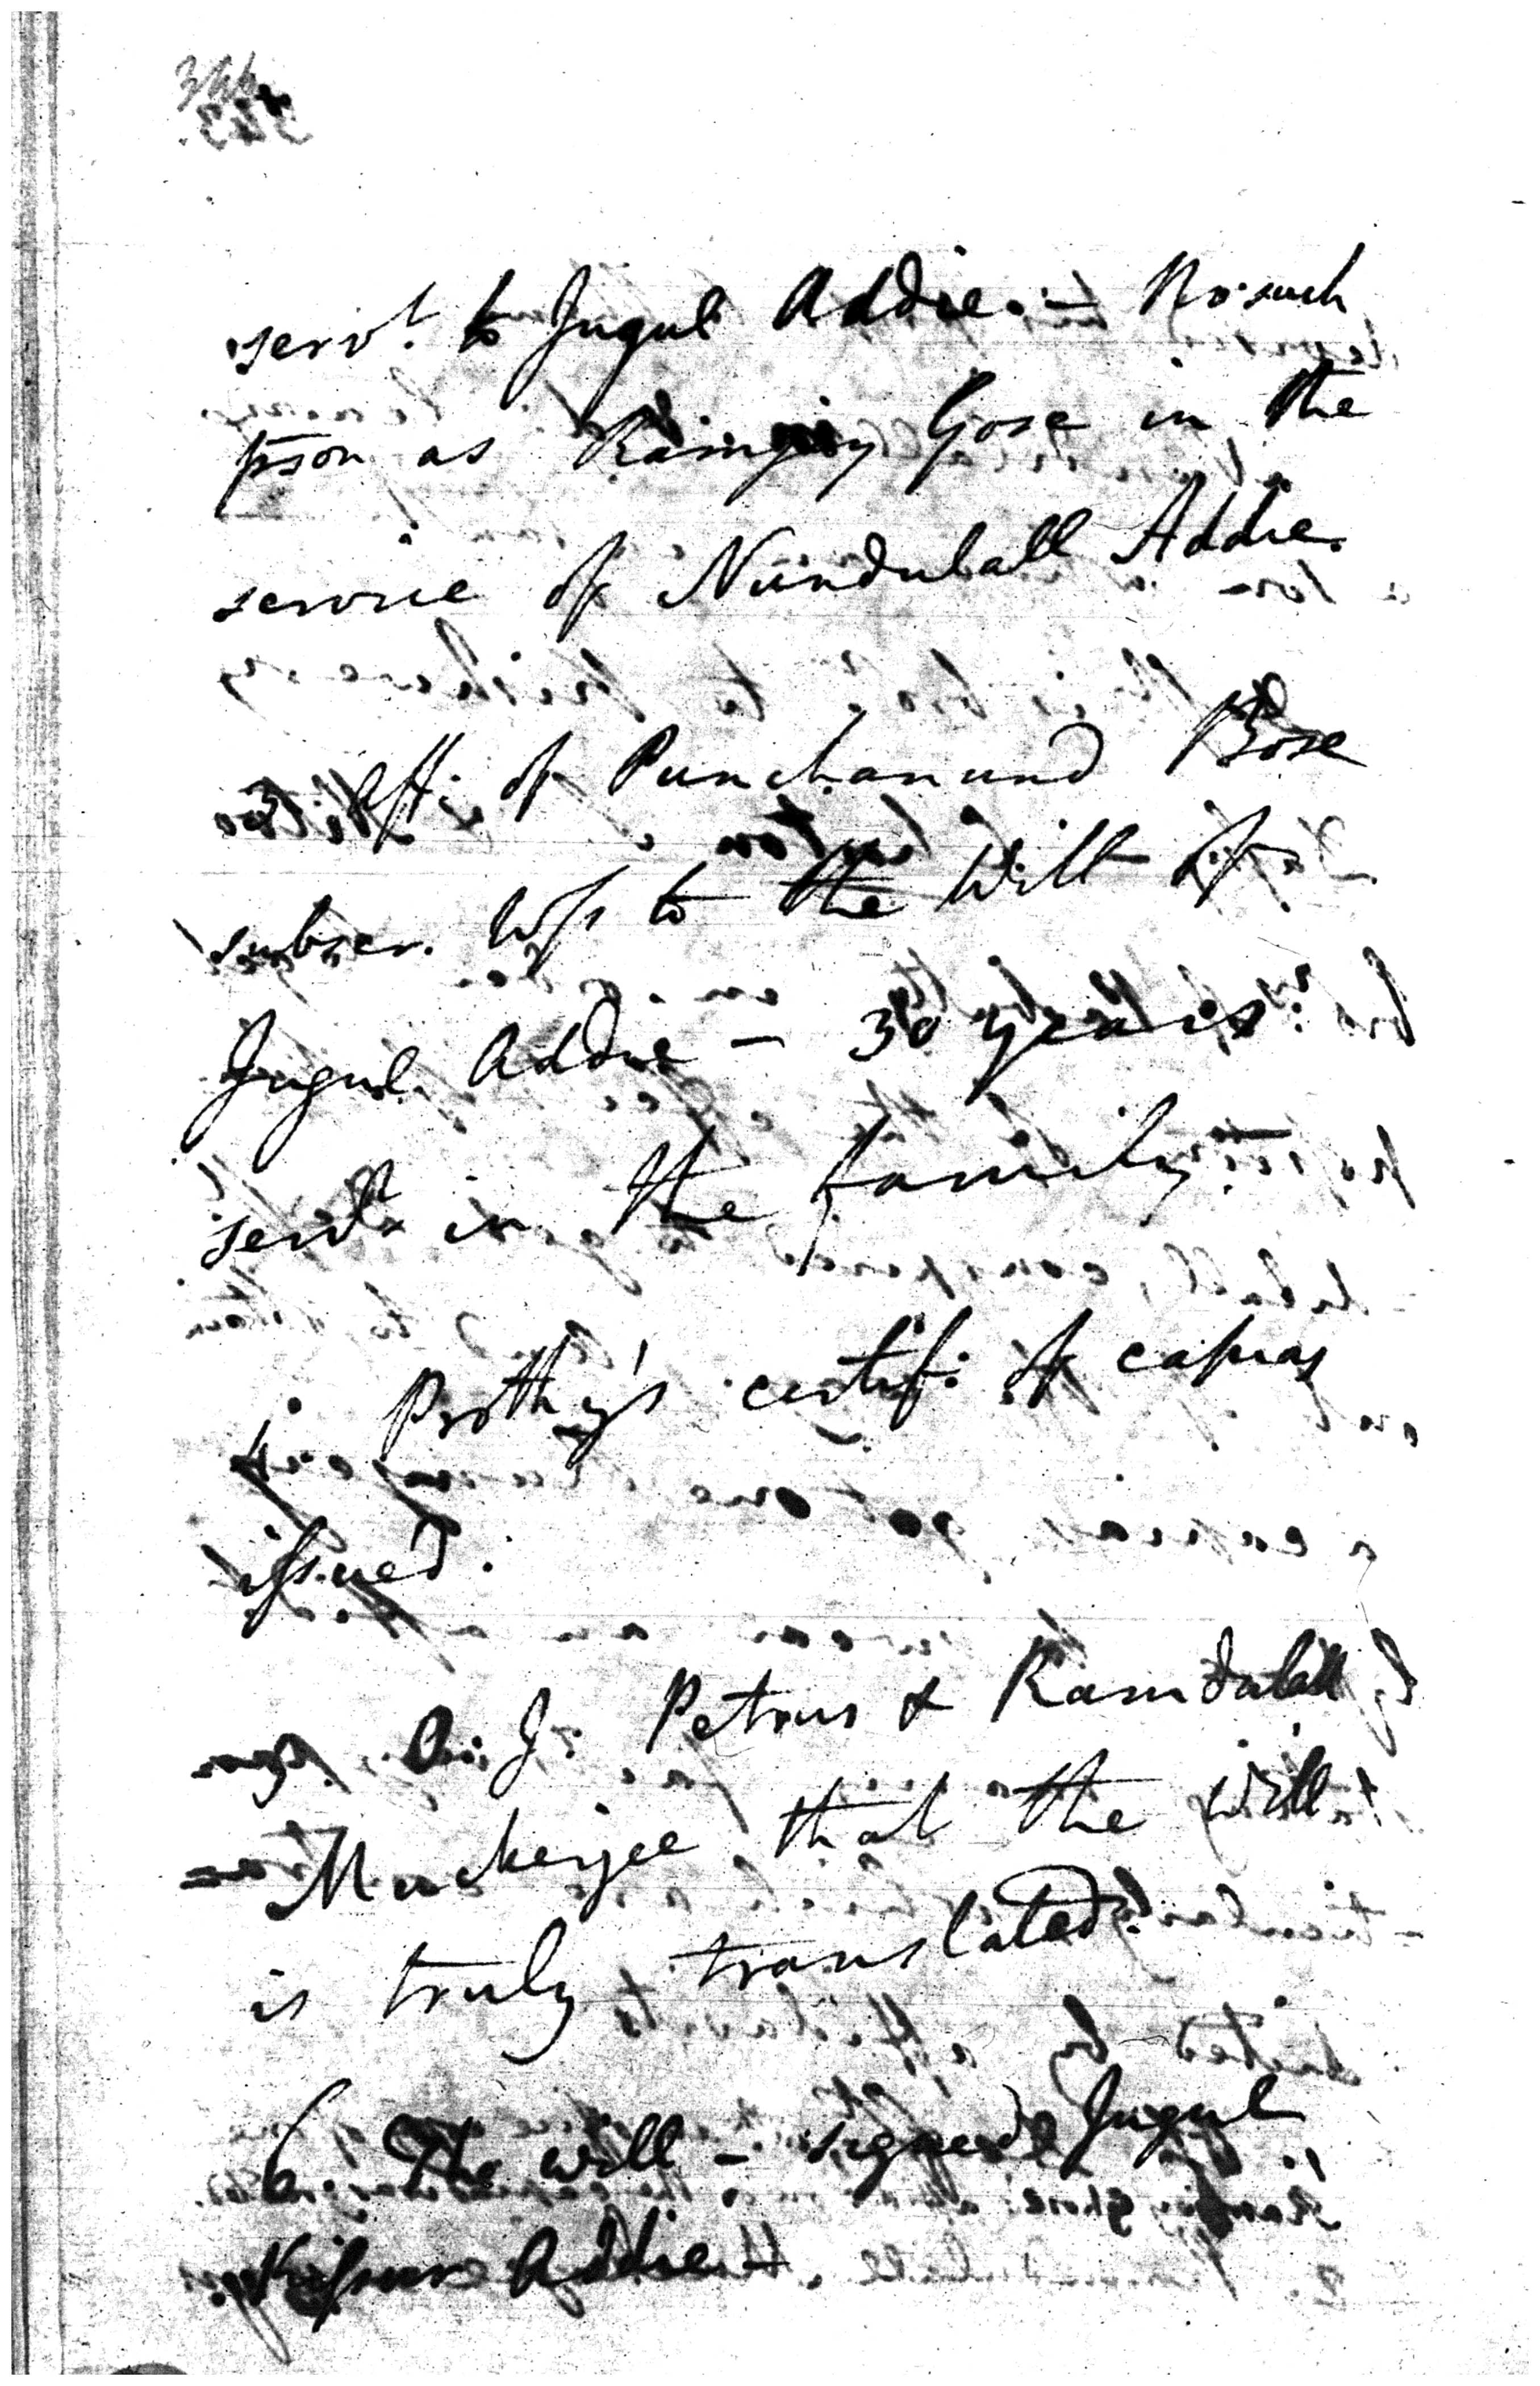 344
servt. to Jugul Addie. - No such
pson as Ramjoy Gose in the
service of Nundulall Addie.
3 Aff: of Punchanund Bose
subscr. Wss to the Will of
Jugul Addie - 30 years
servt in the family
4 Prothy's certif: of capias
issued.
5 A. J. Petrus & Ramdulall
Muckerjee that the will
is truly translated.
6 The will - signed Jugul
Kissour Addie -